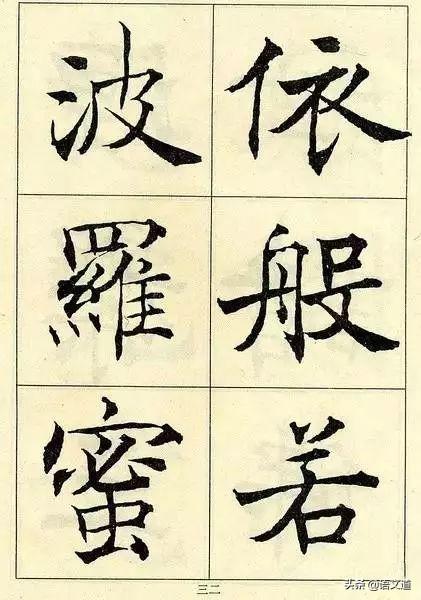 依般若
波羅蜜
三二
头条@语文道